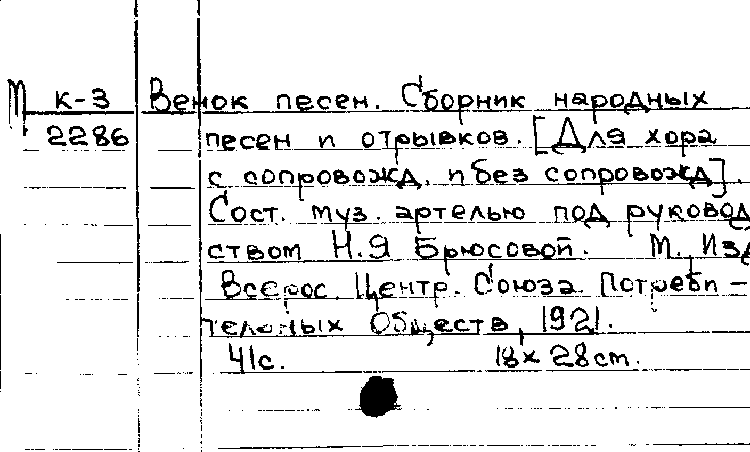 М К-3 Венок песен. Сборник народных
2286 песен и отрывков. [Для хора
с сопровожд. и без сопровожд].
Сост. муз. артелью под руковод
ством Н.Я Брюсовой. М., Изд
Всерос. Центр. Союза Потреби-
тельных Обществ, 1921.
41с. 18х28см.